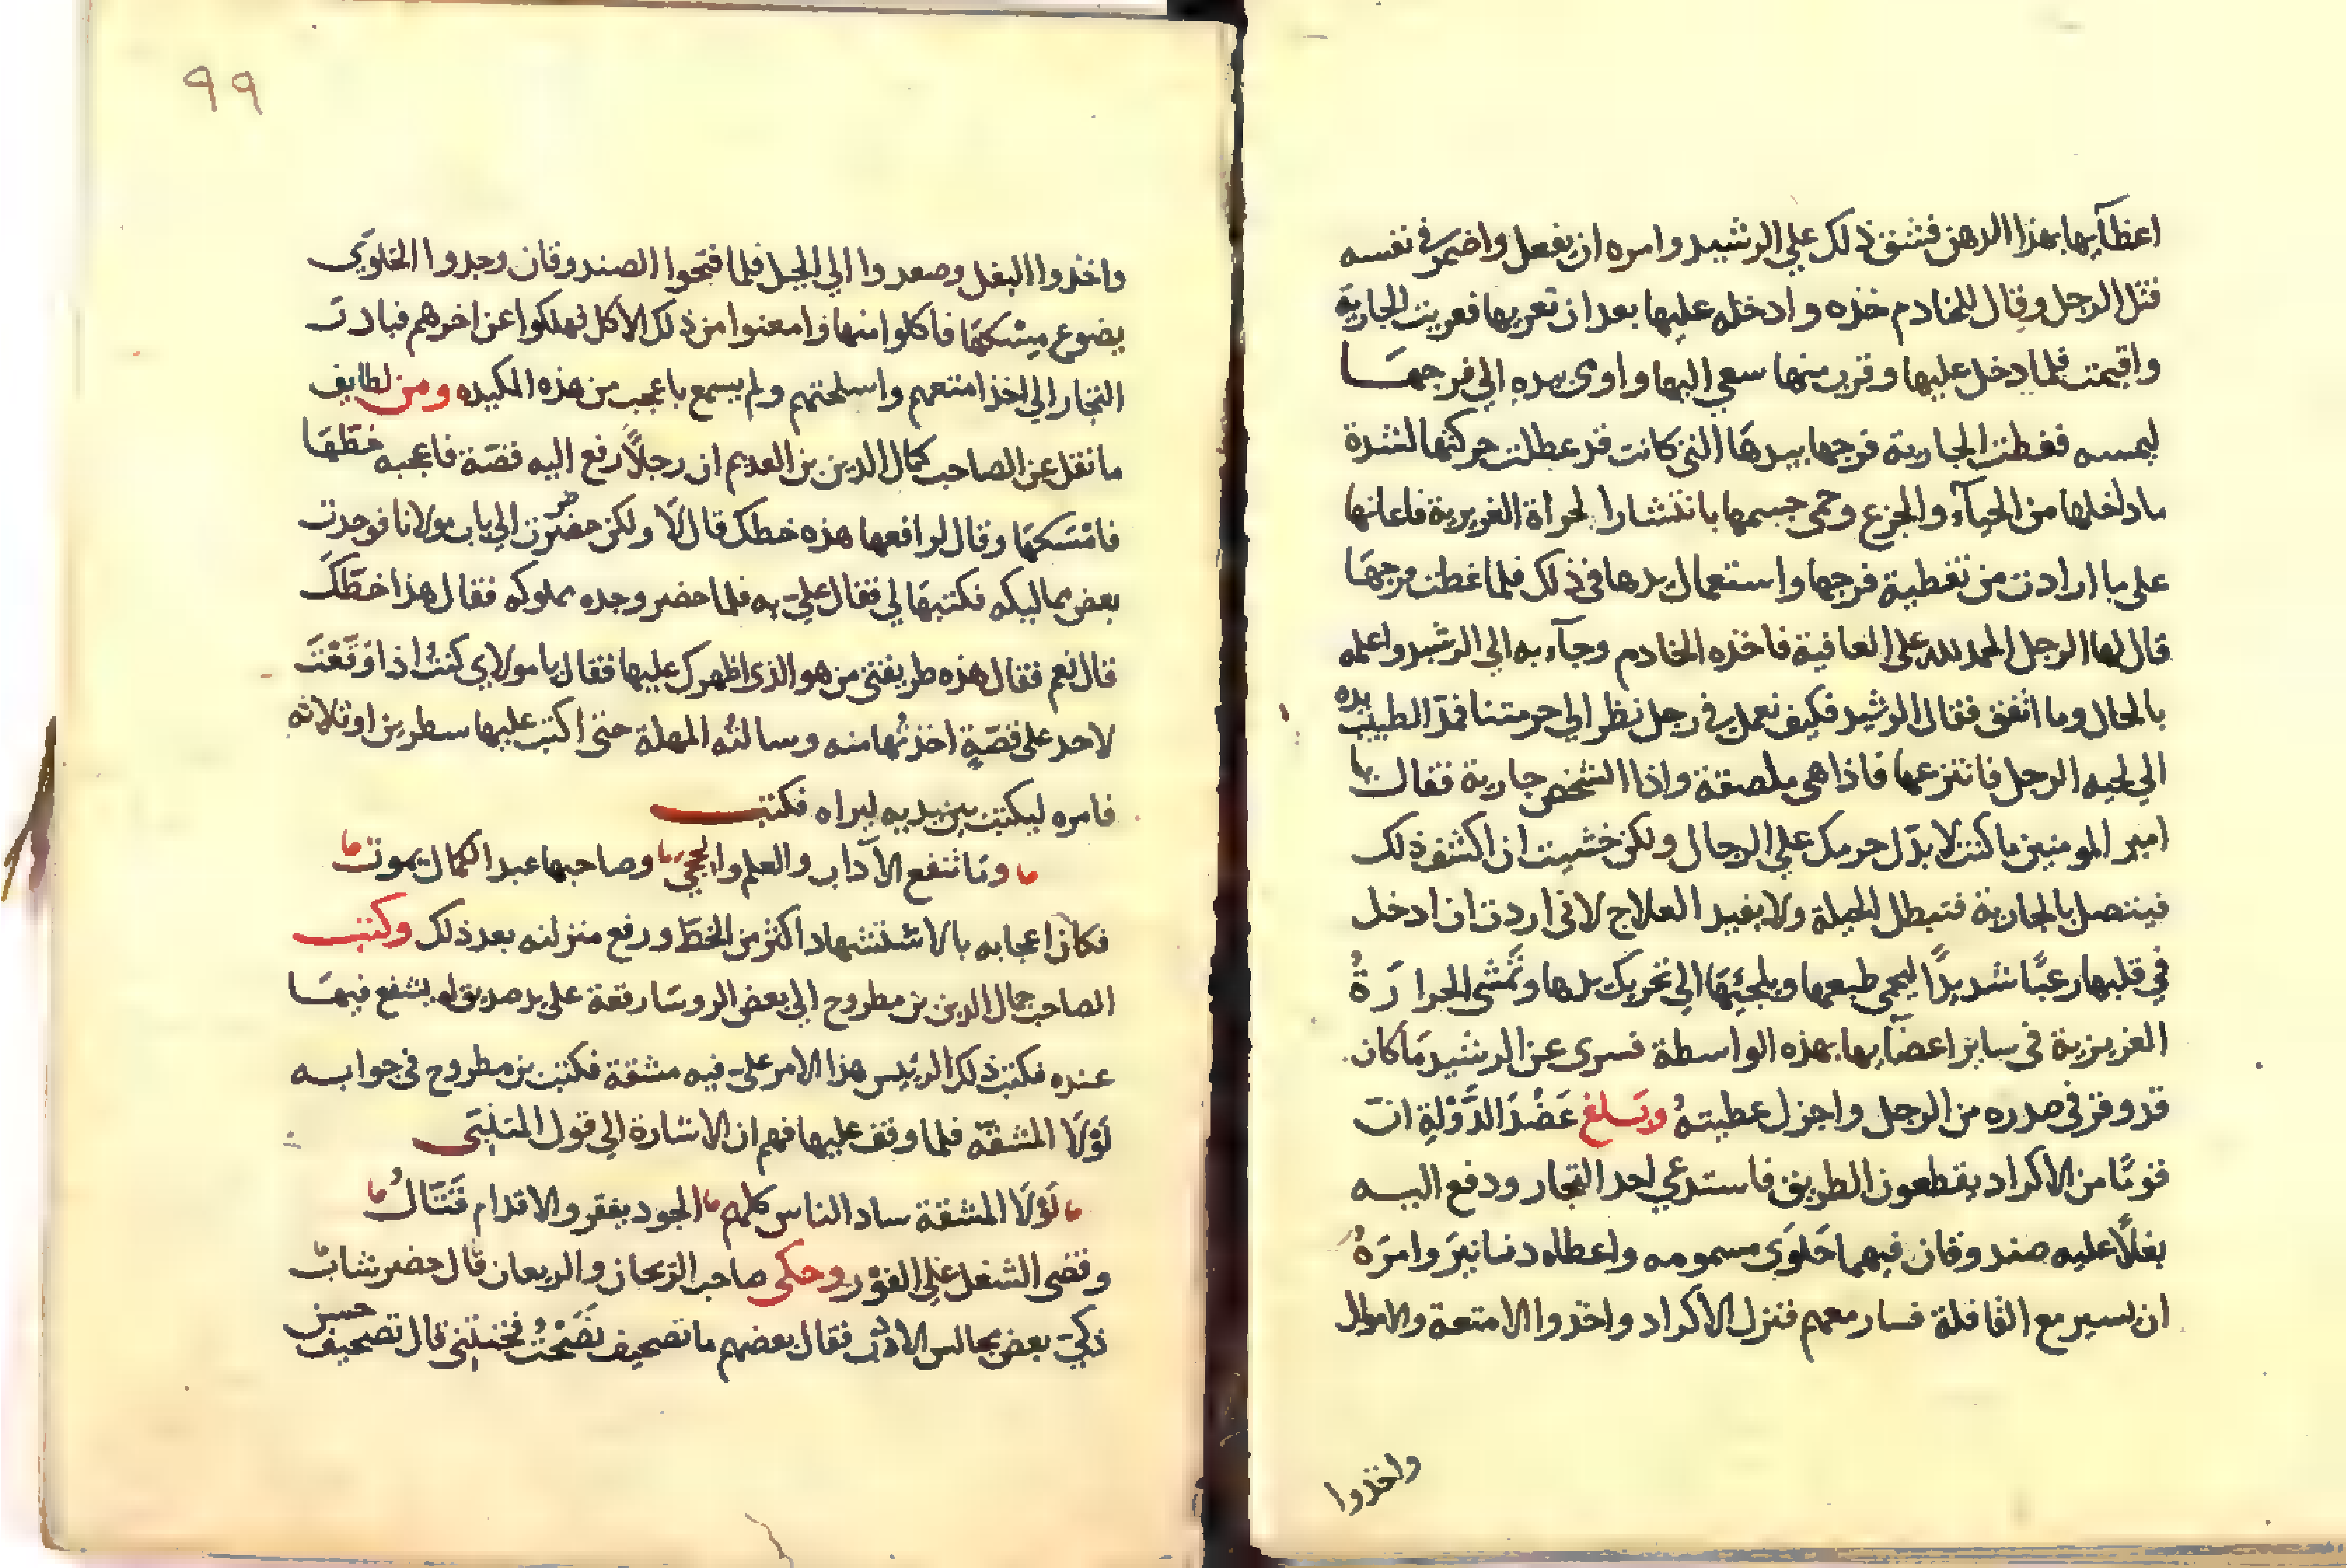 اعظآيها بهذا الدهن فشق ذلك علي الرشيد وامره ان يفعل واضمر في نفسه
قتل الرجل وقال للخادم خذه وادخله عليها بعد ان تعريها فعريت الجارية
واقيمت فلما دخل عليها وقرب منها سعي اليها واوى بيده الي فرجهـا
ليمسه فغطت الجارية فرجها بيدها التي كانت قد عطلت حركتها لشدة
ما داخلها من الحيآء والجزع وحمى جسمها بانتشار الحراة الغريزية فاعانها
على ما ارادت من تغطية فرجها واستعمال يدها في ذلك فلما غطت فرجها
قال لها الرجل الحمد لله على العافية فاخذه الخادم وجآء به الي الرشيد واعلمه
بالحال وما اتفق فقال الرشيد فكيف نعمل في رجل نظر الي حرمتنا فمد الطبيب يده
الي لحيه الرجل فانتزعها فاذا هي ملصقة واذا الشخص جارية فقال يا
امير المومنين ما كنت لابدّل حرمك علي الرجال ولكن خشيت ان اكشف ذلك
فيتصل بالجارية فتبطل الحيلة ولا يفيد العلاج لاني اردت ان ادخل
في قلبها رعبًا شديدًا ليحمي طبعها ويلجئها الي تحريك يدها وتمشي الحرارَةُ
الغريزية في ساير اعضآيها بهذه الواسطة فسرى عن الرشيد ما كان
قد وقر في صدره من الرجل واجزل عطيتهُ وبَـلغ عَضُدَ الدَّوْلَةِ ان
قومًا من الاكراد يقطعون الطريق فاستدعي احد التجار ودفع اليـه
بغلًا عليه صندوقان فيهما حَلوَى مسمومه واعطاه دنانيرَ وامرَهُ
ان يسير مع القافلة فسار معهم فنزل الاكراد واخذوا الامتعة والاموال
واخذوا
٩٩
واخذوا البغل وصعدوا الي الجبل فلما فتحوا الصندوقان وجدوا الحلوَى
يضوع مِسْكهَا فاكلوا منها وامعنوا من ذلك الاكل فهلكوا عن اخرهم فبادرَت
التجار الي اخذ امتعهم واسلحتهم ولم يسمع باعجب من هذه المكيده ومن لطايف
ما نقل عن الصاحب كمال الدين بن العديم ان رجلًا رفع اليه قصّة فاعجبه خطّهَا
فامْسَكهَا وقال لرافعها هذه خطك قال لَا ولكن حضرت الي باب مولانا فوجدت
بعض مماليكه فكتبهَا لي فقال عليّ به فلما حضر وجده مملوكه فقال هذا خطّكَ
قال نعم فقال هذه طريقتي من هو الذي اظهرك عليها فقال يا مولاي كنتُ اذا وَقّعْتَ
لاحد على قصّةٍ اخذتُها منه وسالتُه المهلة حتى اكتب عليها سطرين او ثلاثه
فامره ليكتب بين يديه ليراه فكتب
وما تنفع الآداب والعلم والحجى وصاحبها عند الكمال يموت
فكان اعجابه بالاستشهاد اكثر من الخط ورفع منزلته بعد ذلك وكتب
الصاحب جمال الدين بن مطروح الي بعض الروسَا رقعة على يد صديق له يشفع فيهـا
عنده فكتب ذلك الرئيس هذا الامر علىّ فيه مشقة فكتب بن مطروح في جوابـه
لَوْلَا المشقّه فلما وقف عليها فهم ان الاشارة الي قول المتنبّي
لَوْلَا المشقة ساد الناس كلهم الجود يفقر والاقدام قَتّالُ
وقضى الشغل علي الفوْر وحكى صاحب الريحان والريعان قال حضر شابٌ
ذكيّ بعض مجالس الادب فقال بعضهم ما تصحيف نَصَحْتُ فخنتني قال تصحيف حسن